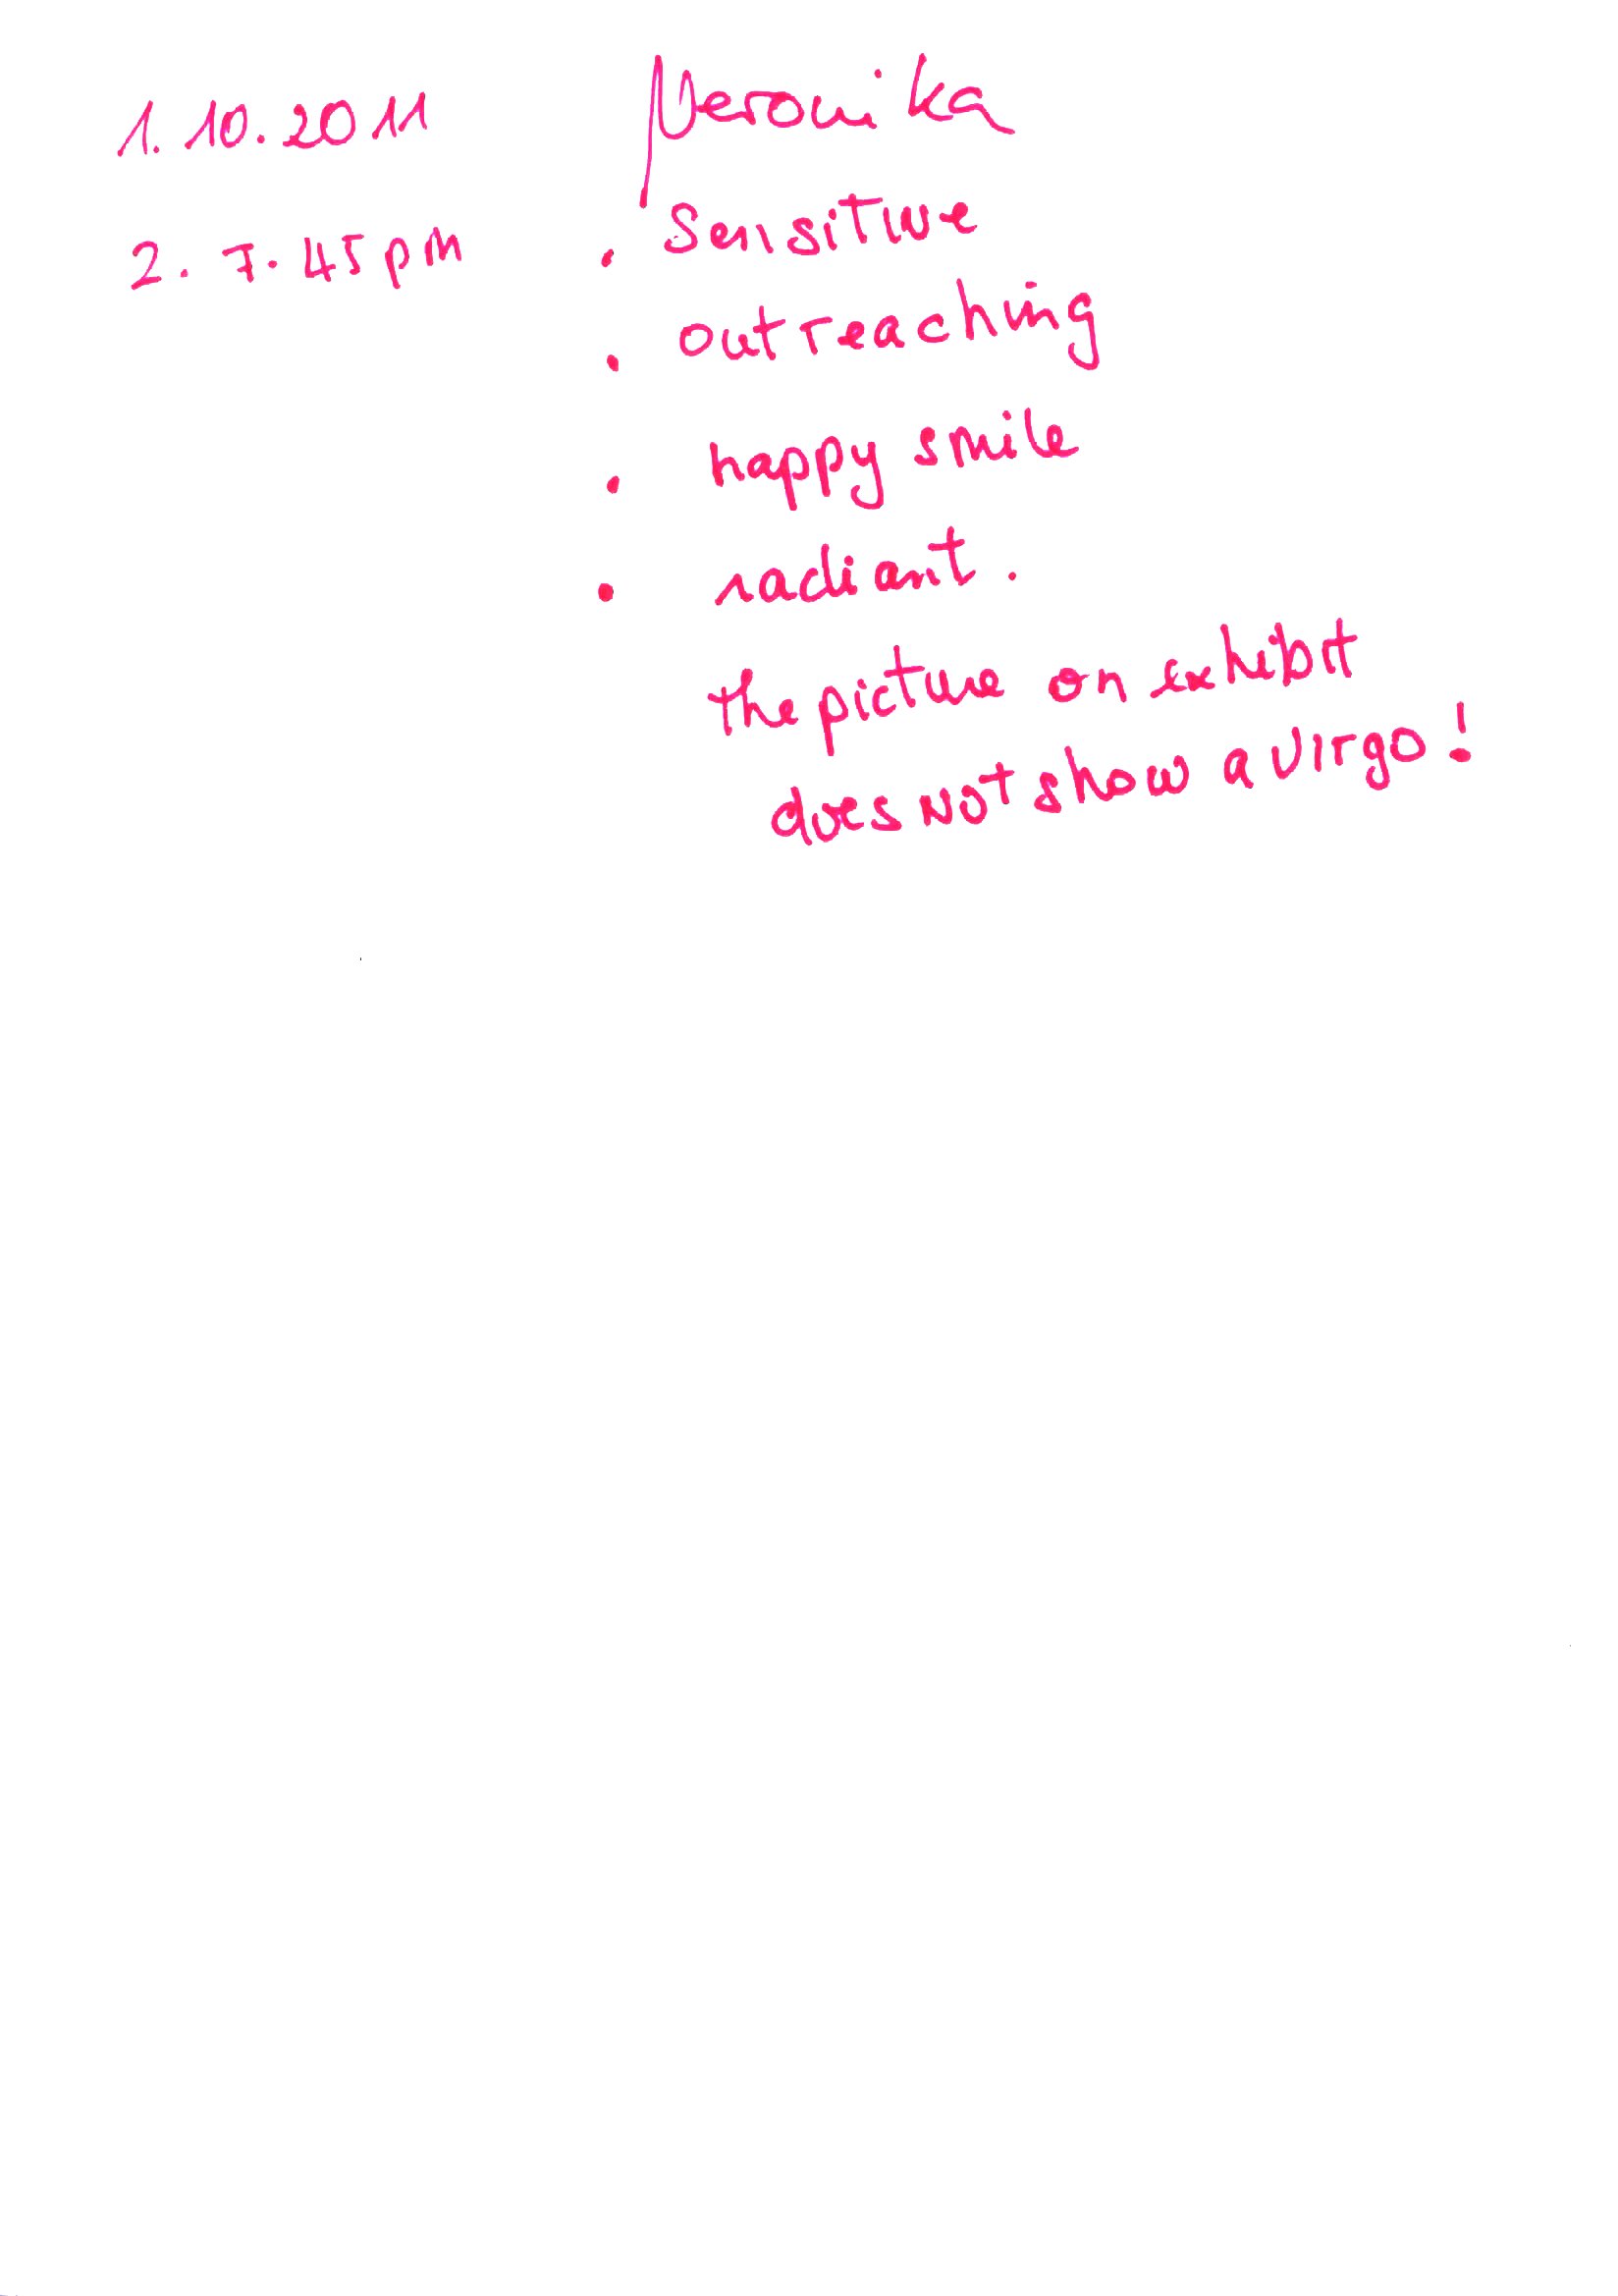 1.10.2011
2. 7.45pm
Veronika
. Sensitive
. outreaching
. happy smile
. radiant.
the picture on exhibit
does not show a virgo!